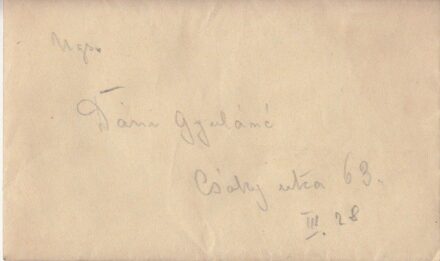 Ngs.
Dári Gyuláné
Csáky utca 63.
III. 28